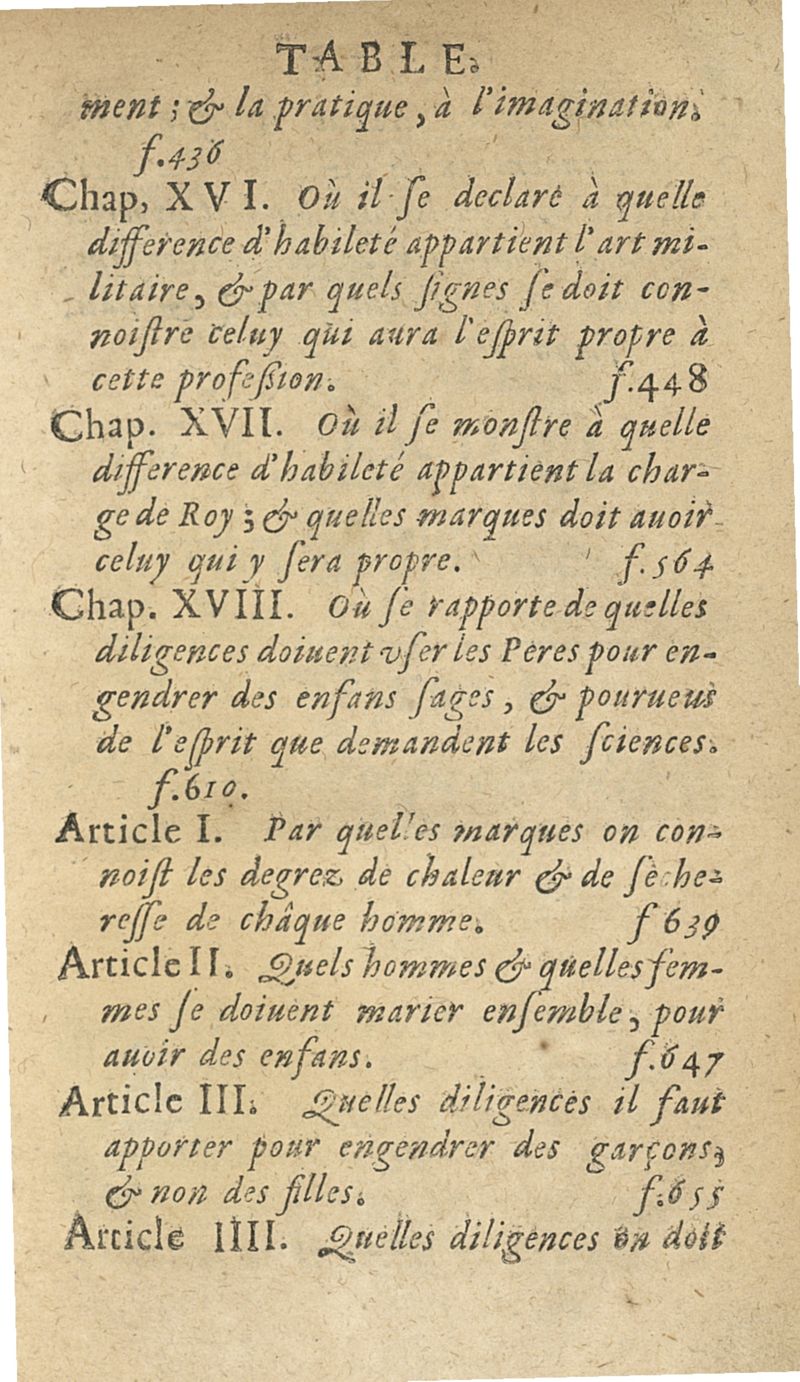 TABLE.
ment ; & la pratique, à l'imagination.
f.436
Chap, XVI. Où il ſe declare à quelle
difference d'habileté appartient l'art mi-
litaire, & par quels ſignes ſe doit con-
noiſtre celuy qui aura l'eſprit propre à
cette profeſſion. f.448
Chap. XVII. Où il ſe monſtre à quelle
difference d'habileté appartient la char-
ge de Roy ; & quelles marques doit auoir
celuy qui y ſera propre. f.564
Chap. XVIII. Où ſe rapporte de quelles
diligences doiuent vſer les Peres pour en-
gendrer des enfans ſages, & pourueus
de l'eſprit que demandent les ſciences.
f.610.
Article I. Par quelles marques on con-
noiſt les degrez de chaleur & de ſeche-
reſſe de châque homme. f 639
Article II. Quels hommes & quelles fem-
mes ſe doiuent marier enſemble, pour
auoir des enfans. f.647
Article III. Quelles diligences il faut
apporter pour engendrer des garçons,
& non des filles. f.655
Article IIII. Quelles diligences on doit